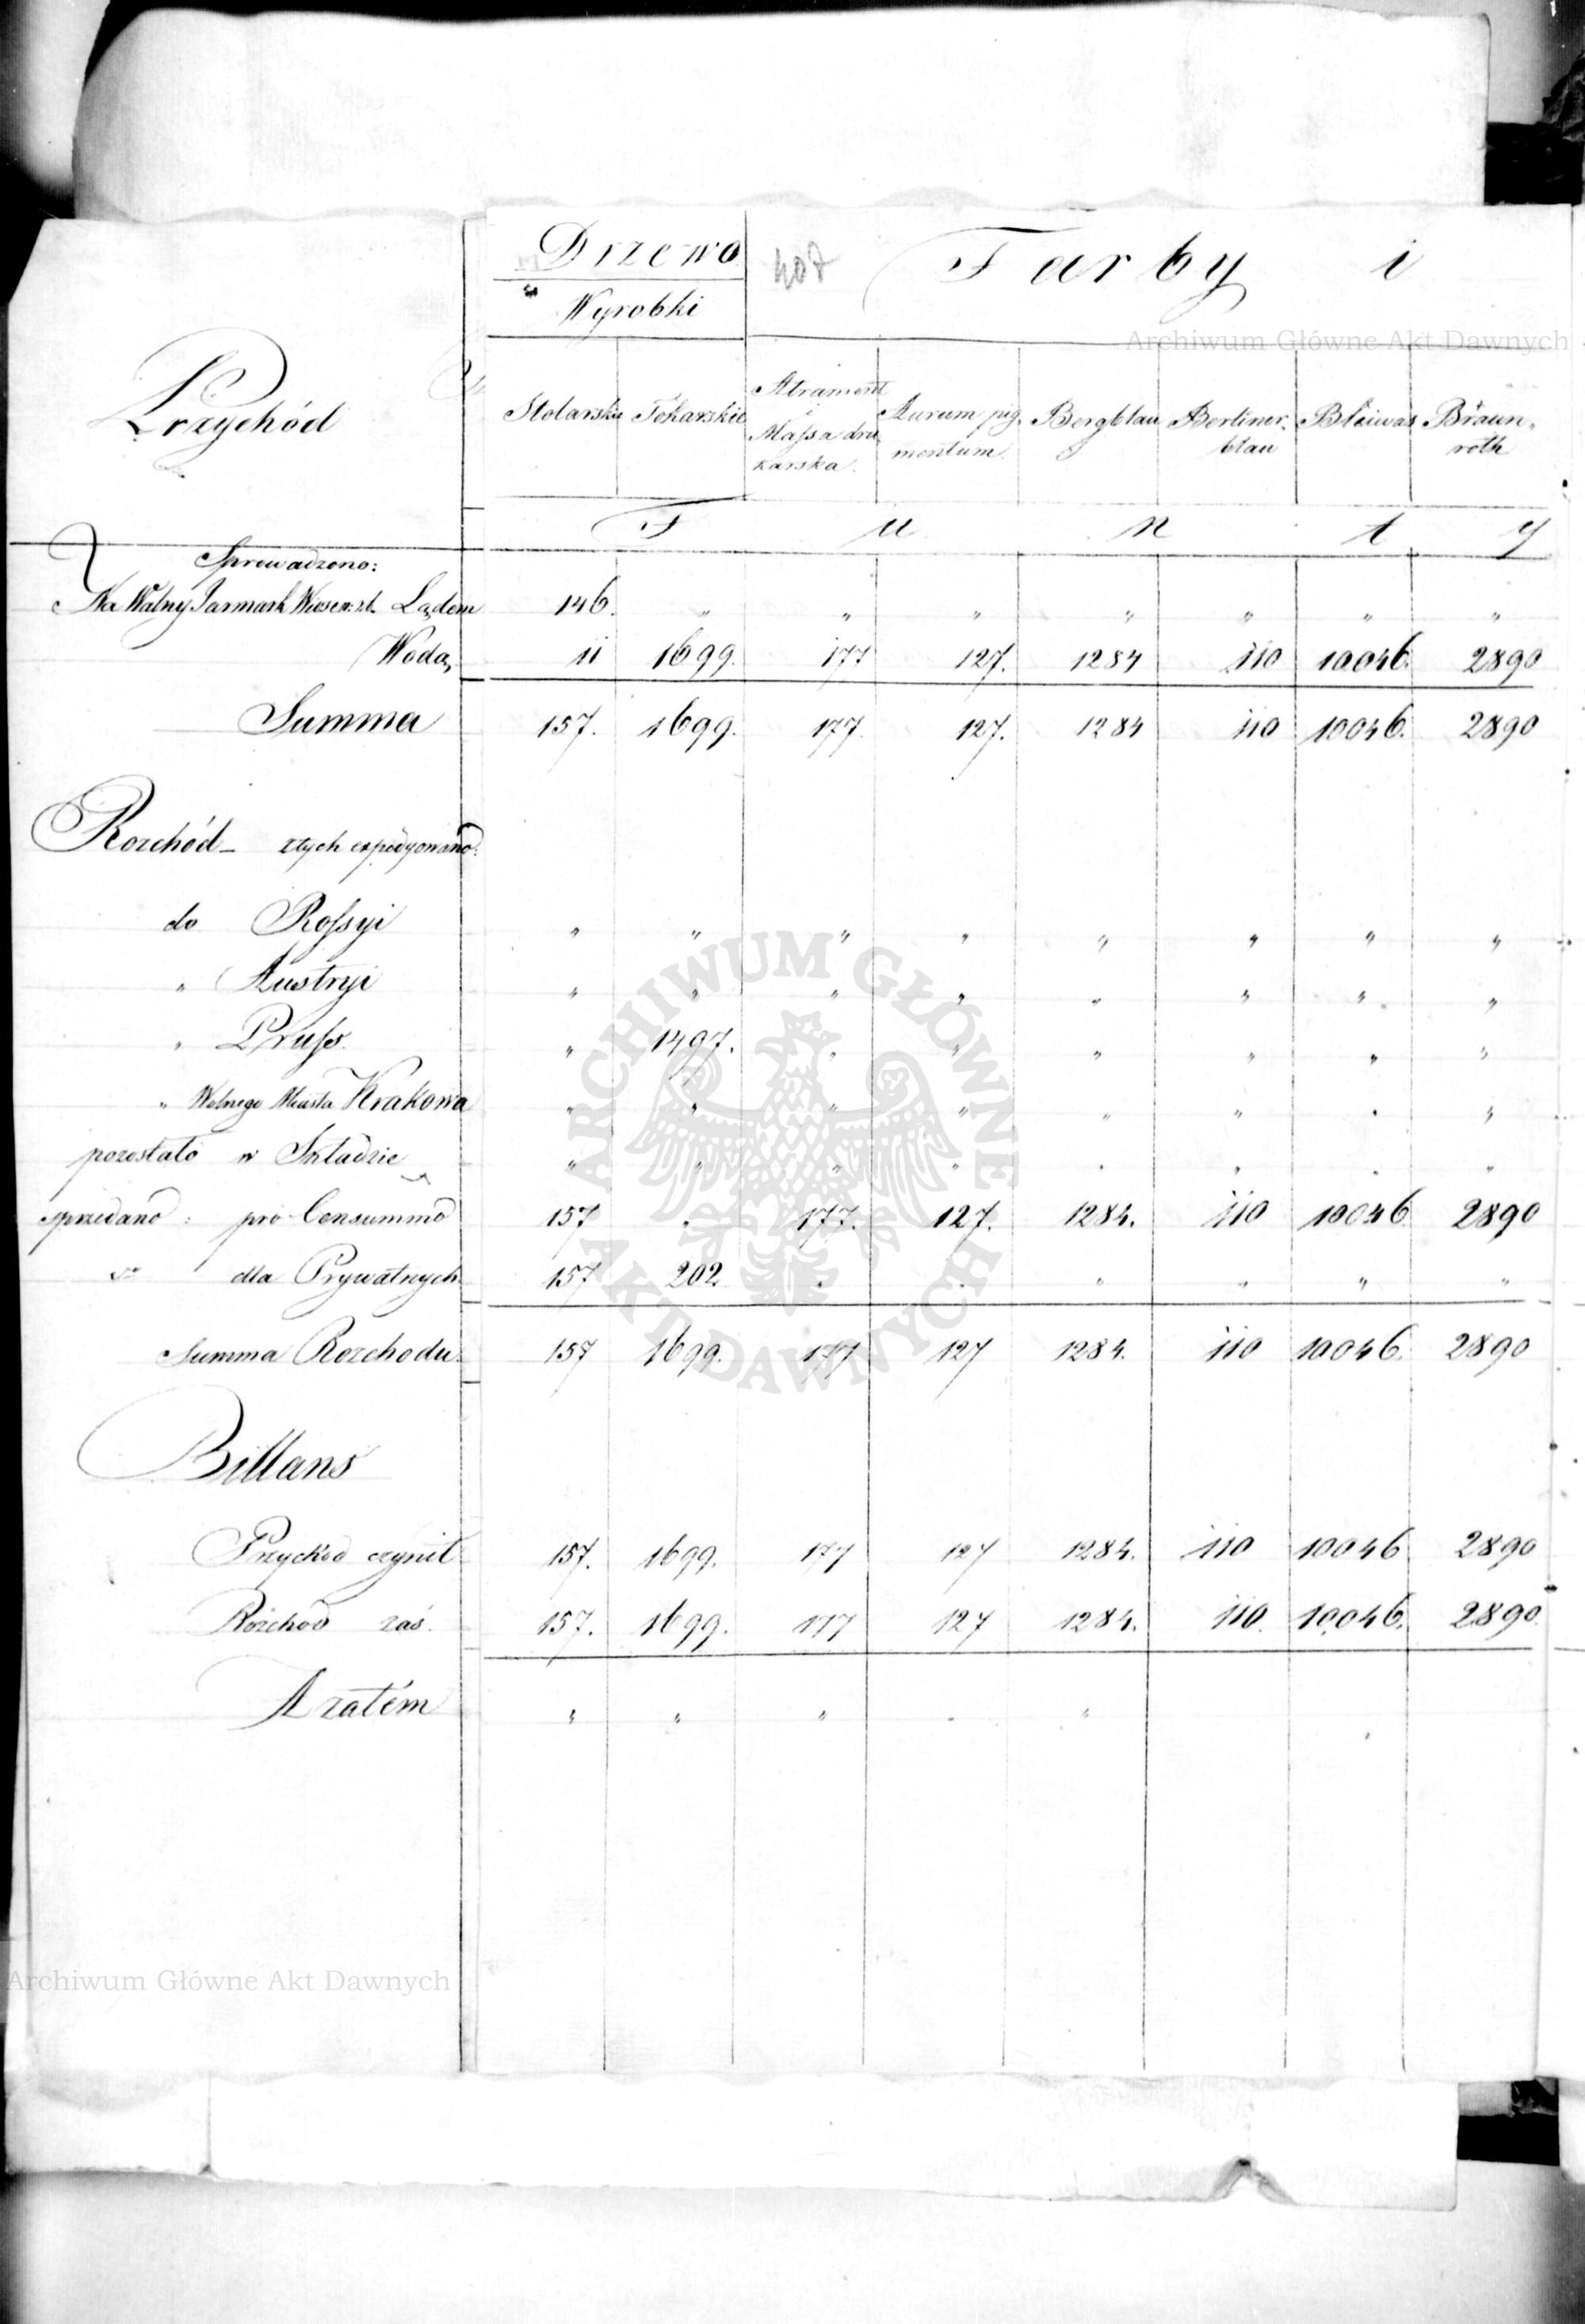 Drzewo 407 Farby i
Wyrobki
Archiwum Główne Akt Dawnych
Przychód
Stolarskie Tokarskie Atrament i Massa drukarska. Aurum pigmentum. Bergblau Berliner blau Bleiwas Braunroth
F u n t y
Sprowadzono:
Na Walny Jarmark Lądem 146. " " " " " " "
Wodą 11 1699. 177 127. 1284 110 10046. 2890
Summa 157. 1699. 177. 127. 1284 110 10046. 2890
Rozchód z tych expedyowano:
do Rossyi " " " " " " " "
" Austryi " " " " " " " "
" Pruss. " 1497. " " " " " "
" Wolnego Miasta Krakowa " " " " " " " "
pozostało w Składzie " " " " " " " "
sprzedano: pro Consummo 157 " 177. 127. 1284. 110 10046 2890
dla Prywatnych 157 202 " " " " " "
Summa Rozchodu 157 1699. 177 127 1284. 110 10046. 2890
Billans
Przychód czynił 157. 1699. 177 127 1284. 110 10046 2890
Rozchód zaś. 157. 1699. 177 127 1284. 110. 10046. 2890.
A zatém " " " " " "
ARCHIWUM GŁÓWNE AKT DAWNYCH
Archiwum Główne Akt Dawnych